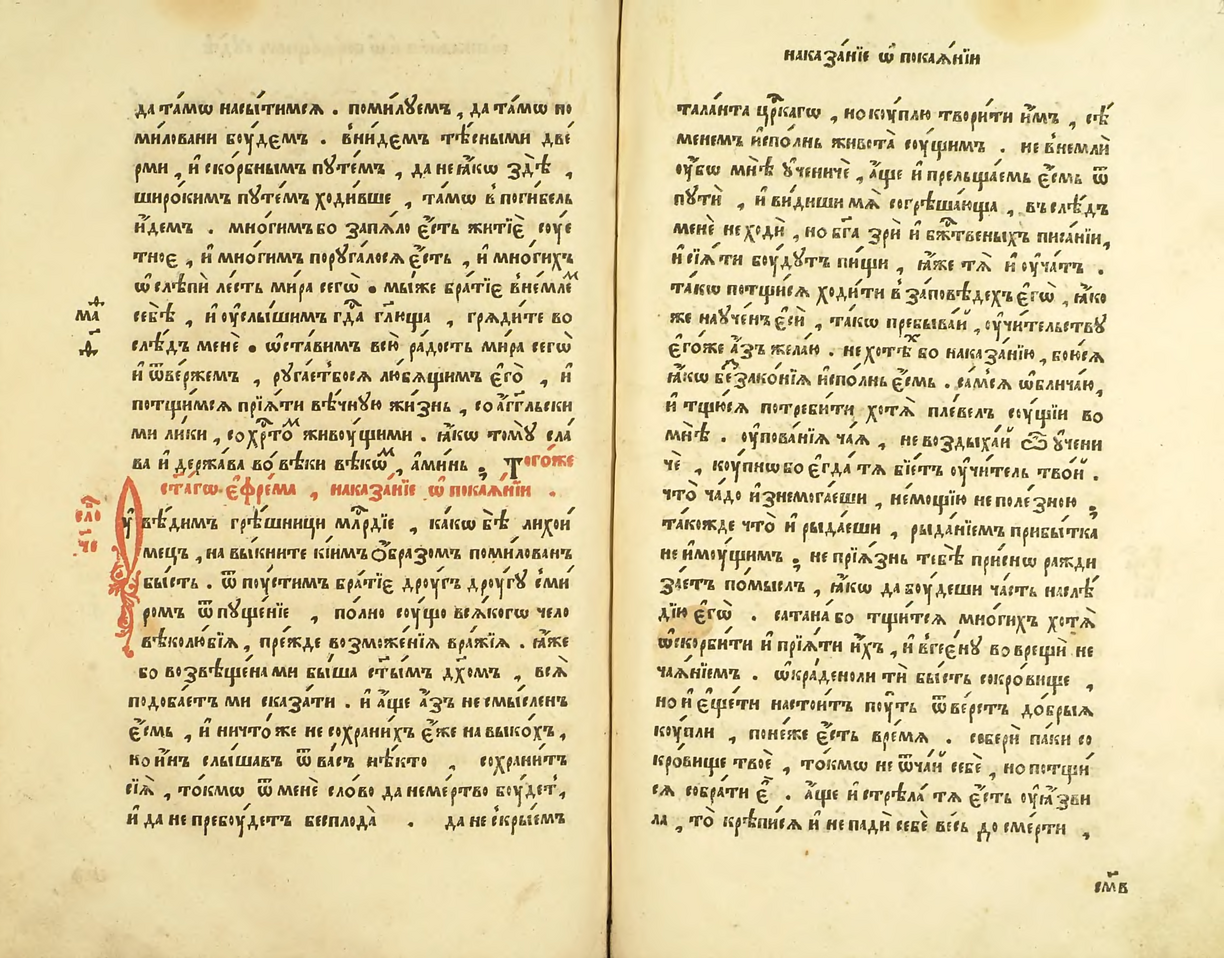 да та́мѡ насы́тимсѧ . поми́лꙋемъ , да та́мѡ по
ми́ловани бꙋ́демъ . вни́демъ тѣ́сными две́
рми , и҆ ско́рбнымъ пꙋте́мъ , да не ꙗ҆́кѡ здѣ̀ ,
широ́кимъ пꙋте́мъ ходи́вше , та́мѡ в поги́бель
и҆́демъ . мно́гимъ бо запѧ́ло є҆́сть житїѐ сꙋе́
тное , и҆ мно́гимъ порꙋга́лосѧ є҆́сть , и҆ мно́гихъ
ѡ҆слѣпѝ ле́сть ми́ра сегѡ̀ . мы́же бра́тїе вне́млеᷨ
себѣ̀ , и҆ ᲂу҆слы́шимъ гдⷭ҇а гл҃юща , грѧди́те во
ма
д҃
слѣ́дъ менѐ . ѡ҆ста́вимъ всю̀ ра́дость ми́ра сегѡ̀
и҆ ѿве́ржемъ , рꙋга́етбосѧ лю́бѧщимъ є҆гѡ̀ , и҆
потщи́мсѧ прїѧ́ти вѣ́чнꙋю жи́знь , со а҆́гг҃льски
ми ли́ки , со хрⷭ҇то́мъ живꙋ́щими . ꙗ҆́кѡ томꙋ̀ сла́
ва и҆ держа́ва во вѣ́ки вѣкѡ́мъ , а҆ми́нь ; Тогѡ́же
ст҃а́гѡ є҆фре́ма , наказа́нїе ѡ҆ покаѧ́нїи .
сло́
ч҃о
Оу҆вѣ́димъ грѣ́шници млⷭ҇рдїе , ка́кѡ бѣ̀ лихои́
мецъ , на выкни́те кі́имъ ѻ҆́бразомъ поми́лованъ
бы́сть . ѿпꙋ́стимъ бра́тїе дрꙋ́гъ дрꙋ́гꙋ с ми́
ромъ ѿпꙋще́нїе , по́лно сꙋ́що всѧ́когѡ чело
вѣколю́бїѧ , пре́жде возможе́нїѧ вра́жїѧ . ꙗ҆́же
бо возвѣщена́ ми бы́ша ст҃ы́мъ дх҃омъ , всѧ̀
подоба́етъ ми сказа́ти . и҆ а҆́ще а҆́зъ несмы́сленъ
є҆́смь , и҆ ничто́же не сохрани́хъ є҆́же навыко́хъ ,
но и҆́нъ слы́шавъ ѿ ва́съ нѣ́кто , сохрани́тъ
сїѧ̀ , то́кмѡ ѿ менѐ сло́во да неме́ртво бꙋ́детъ ,
и҆ да не пребꙋ́детъ бесплода̀ . да не скры́емъ
наказа́нїе ѡ҆ покаѧ́нїи
тала́нта цр҃кагѡ , но кꙋ́плю твори́ти и҆́мъ , сѣ́
менемъ и҆спо́лнь живота̀ сꙋ́щимъ . не внемлѝ
ᲂу҆́бѡ мнѣ̀ ᲂу҆ченичѐ , а҆́ще и҆ прельща́емь є҆́смь ѿ
пꙋтѝ , и҆ ви́диши мѧ̀ согрѣша́юща , въслѣ́дъ
менѐ не ходѝ , но бг҃а зрѝ и҆ бжⷭ҇твеныхъ писа́нїи ,
и҆ сїѧ́ ти бꙋ́дꙋтъ пи́щи , ꙗ҆́же тѧ̀ и҆ ᲂу҆ча́тъ .
та́кѡ потщи́сѧ ходи́ти в за́повѣдехъ є҆гѡ̀ , ꙗ҆́ко
же наꙋ́ченъ є҆сѝ , та́кѡ пребыва́й , ᲂу҆чи́тельствꙋ
є҆гѡ́же а҆́зъ жела́ю . не хотѣ́хъ бо наказа́нїю , бою́сѧ
ꙗ҆́кѡ безако́нїѧ и҆спо́лнь є҆́смь . са́мсѧ ѡ҆блича́ю ,
и҆ тщю́сѧ потреби́ти хотѧ̀ пле́велъ сꙋ́щїи во
мнѣ̀ . ᲂу҆пова́нїѧ ча́ѧ , не воздыха́й ѽ ᲂу҆чени
чѐ , кꙋ́пнѡ бо є҆гда́ тѧ бїе́тъ ᲂу҆чи́тель тво́й .
что̀ ча́до и҆знемога́еши , не́мощїю неполе́зною ;
та́кожде что̀ и҆ рыда́еши , рыда́нїемъ прибы́тка
не и҆мꙋ́щимъ ; не прїѧ́знь тебѣ̀ при́снѡ ражди
за́етъ по́мыслъ , ꙗ҆́кѡ да бꙋ́деши ча́сть наслѣ́
дїю є҆гѡ̀ . сатана̀ бо тщи́тсѧ мно́гихъ хотѧ̀
ѡ҆скорби́ти и҆ прїѧ́ти и҆́хъ , и҆ в гее́нꙋ вовре́щи не
ча́ѧнїемъ . ѡ҆кра́дено ли тѝ бы́сть сокро́вище ,
но и҆ є҆ще́ ти настои́тъ пꙋ́ть ѿве́рстъ до́брыѧ
кꙋ́пли , поне́же є҆́сть вре́мѧ . соберѝ па́ки со
кро́вище твоѐ , то́кмѡ не ѿча́й себѐ , но потщи́
сѧ собра́ти є҆̀ . а҆́ще и҆ стрѣла́ тѧ є҆́сть ᲂу҆ꙗзви́
ла , то̀ крѣпи́сѧ и҆ не падѝ себѐ ве́сь до сме́рти ,
см҃в